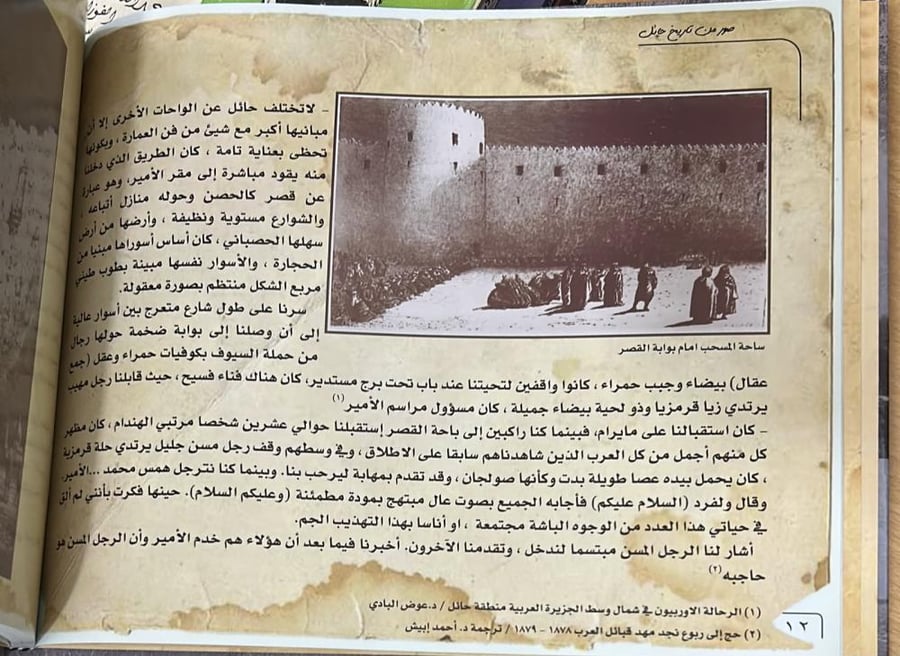 صور من تاريخ حائل
- لاتختلف حائل عن الواحات الأخرى إلا أن
مبانيها أكبر مع شيئ من فن العمارة ، وبكونها
تحظى بعناية تامة ، كان الطريق الذي دخلنا
منه يقود مباشرة إلى مقر الأمير، وهو عبارة
عن قصر كالحصن وحوله منازل أتباعه ،
والشوارع مستوية ونظيفة ، وأرضها من أرض
سهلها الحصباني ، كان أساس أسوارها مبنيا من
الحجارة ، والأسوار نفسها مبينة بطوب طيني
مربع الشكل منتظم بصورة معقولة.
سرنا على طول شارع متعرج بين أسوار عالية
إلى أن وصلنا إلى بوابة ضخمة حولها رجال
من حملة السيوف بكوفيات حمراء وعقل (جمع
ساحة المسحب امام بوابة القصر
عقال) بيضاء وجبب حمراء ، كانوا واقفين لتحيتنا عند باب تحت برج مستدير، كان هناك فناء فسيح ، حيث قابلنا رجل مهيب
يرتدي زيا قرمزيا وذو لحية بيضاء جميلة ، كان مسؤول مراسم الأمير(١)
- كان استقبالنا على مايرام، فبينما كنا راكبين إلى باحة القصر إستقبلنا حوالي عشرين شخصا مرتبي الهندام ، كان مظهر
كل منهم أجمل من كل العرب الذين شاهدناهم سابقا على الاطلاق ، وفي وسطهم وقف رجل مسن جليل يرتدي حلة قرمزية
، كان يحمل بيده عصا طويلة بدت وكأنها صولجان ، وقد تقدم بمهابة ليرحب بنا. وبينما كنا نترجل همس محمد ...الأمير.
وقال ولفرد (السلام عليكم) فأجابه الجميع بصوت عال مبتهج بمودة مطمئنة (وعليكم السلام). حينها فكرت بأنني لم ألق
في حياتي هذا العدد من الوجوه الباشة مجتمعة ، او أناسا بهذا التهذيب الجم.
أشار لنا الرجل المسن مبتسما لندخل ، وتقدمنا الآخرون. أخبرنا فيما بعد أن هؤلاء هم خدم الأمير وأن الرجل المسن هو
حاجبه(٢)
(١) الرحالة الاوربيون في شمال وسط الجزيرة العربية منطقة حائل / د.عوض البادي
(٢) حج إلى ربوع نجد مهد قبائل العرب ١٨٧٨ - ١٨٧٩ / ترجمة د. أحمد إيبش
١٢